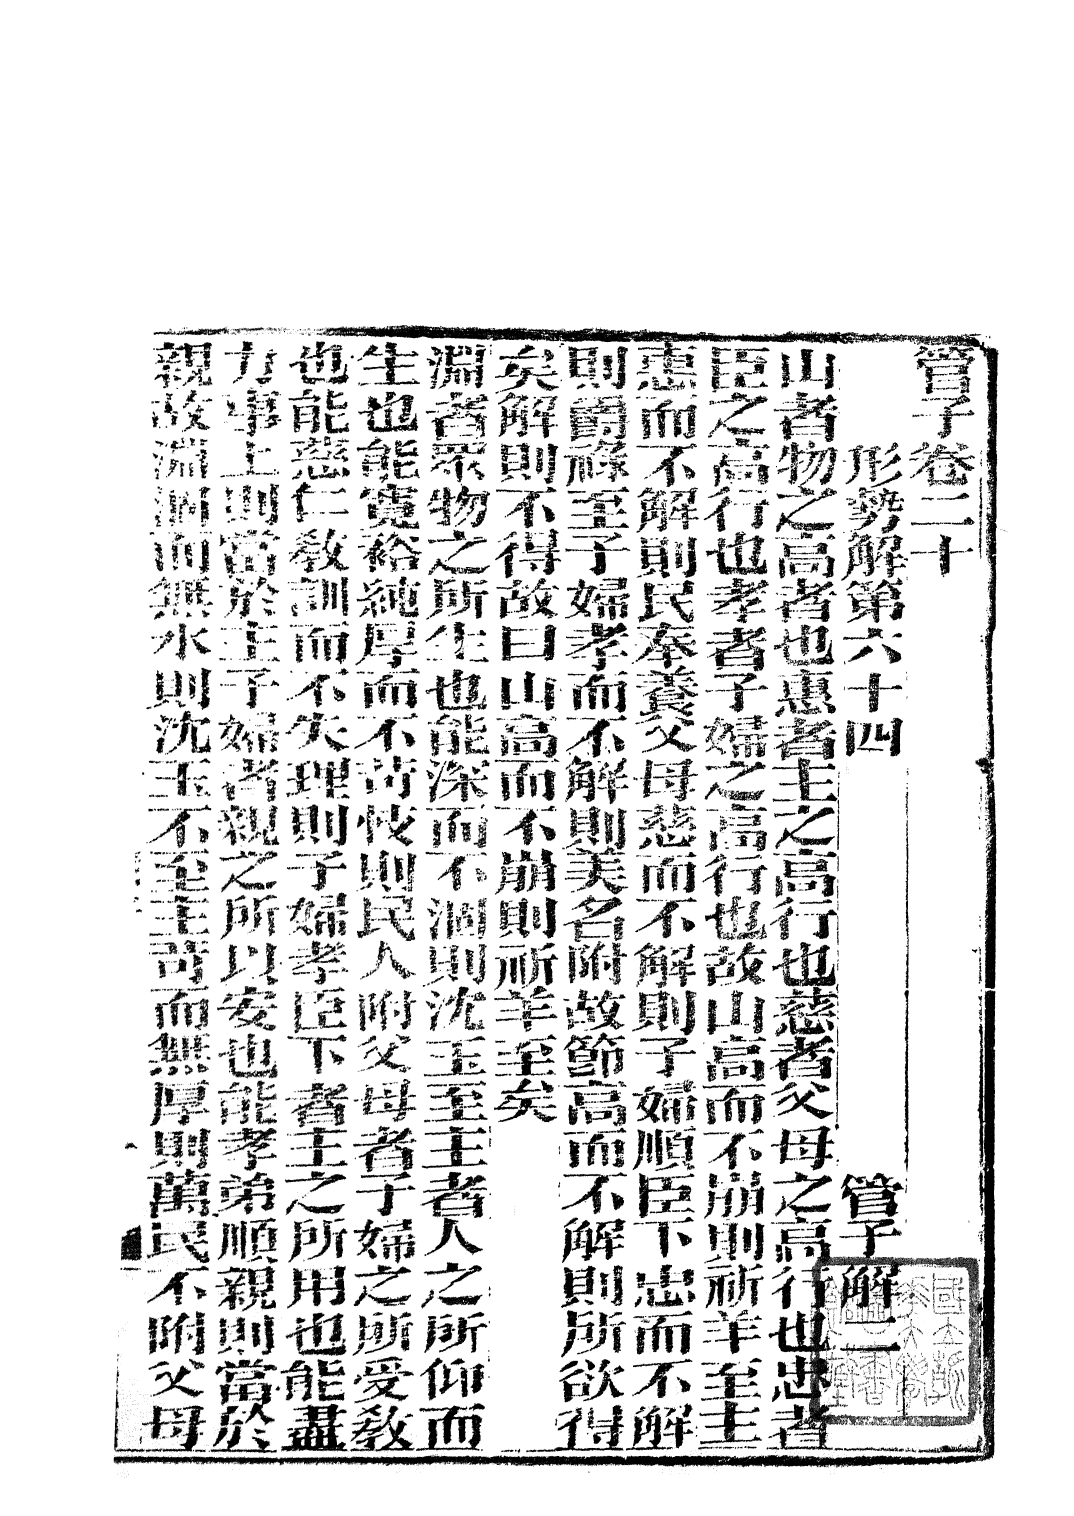 管子卷二十
形勢解第六十四　管子解二
山者物之高者也惠者主之高行也慈者父母之高行也忠者
臣之高行也孝者子婦之高行也故山高而不崩則祈羊至主
惠而不解則民奉養父母慈而不解則子婦順臣下忠而不解
則爵祿至子婦孝而不解則美名附故節高而不解則所欲得
矣解則不得故曰山高而不崩則祈羊至矣
淵者眾物之所生也能深而不涸則沈玉至主者人之所仰而
生也能寬裕純厚而不苛忮則民人附父母者子婦之所受教
也能慈仁教訓而不失理則子婦孝臣下者主之所用也能盡
力事上則當於主子婦者親之所以安也能孝弟順親則當於
親故淵涸而無水則沈玉不至主苛而無厚則萬民不附父母